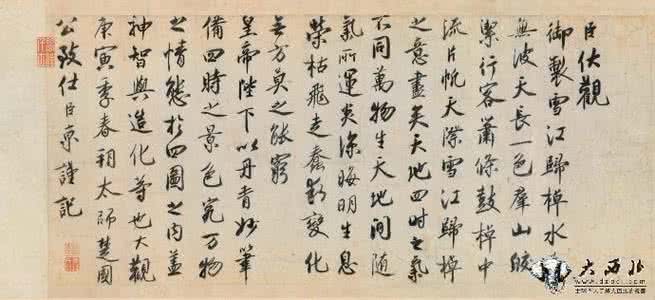 臣伏觀
御製雪江歸棹水遠
無波天長一色群山皎
潔行客蕭條鼓棹中
流片帆天際雪江歸棹
之意盡矣天地四時之氣
不同萬物生天地間隨
氣所運炎涼晦明生息
榮枯飛走蠢動變化
無方莫之能窮
皇帝陛下以丹青妙筆
備四時之景色究萬物
之情態於四圖之內蓋
神智與造化等也大觀
庚寅季春朔太師楚國
公致仕臣京謹記
大西北